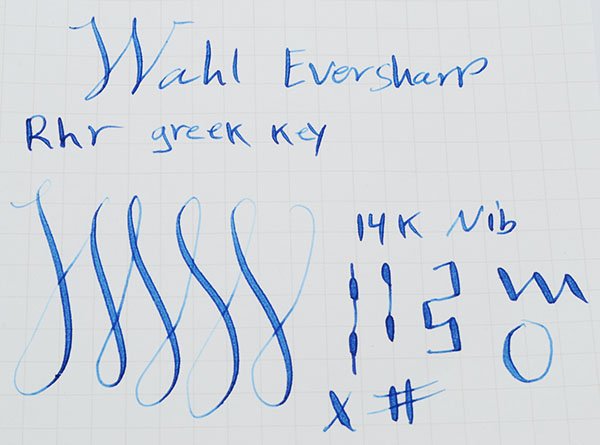 Wahl Eversharp
Rhr greek key
14K Nib
X #